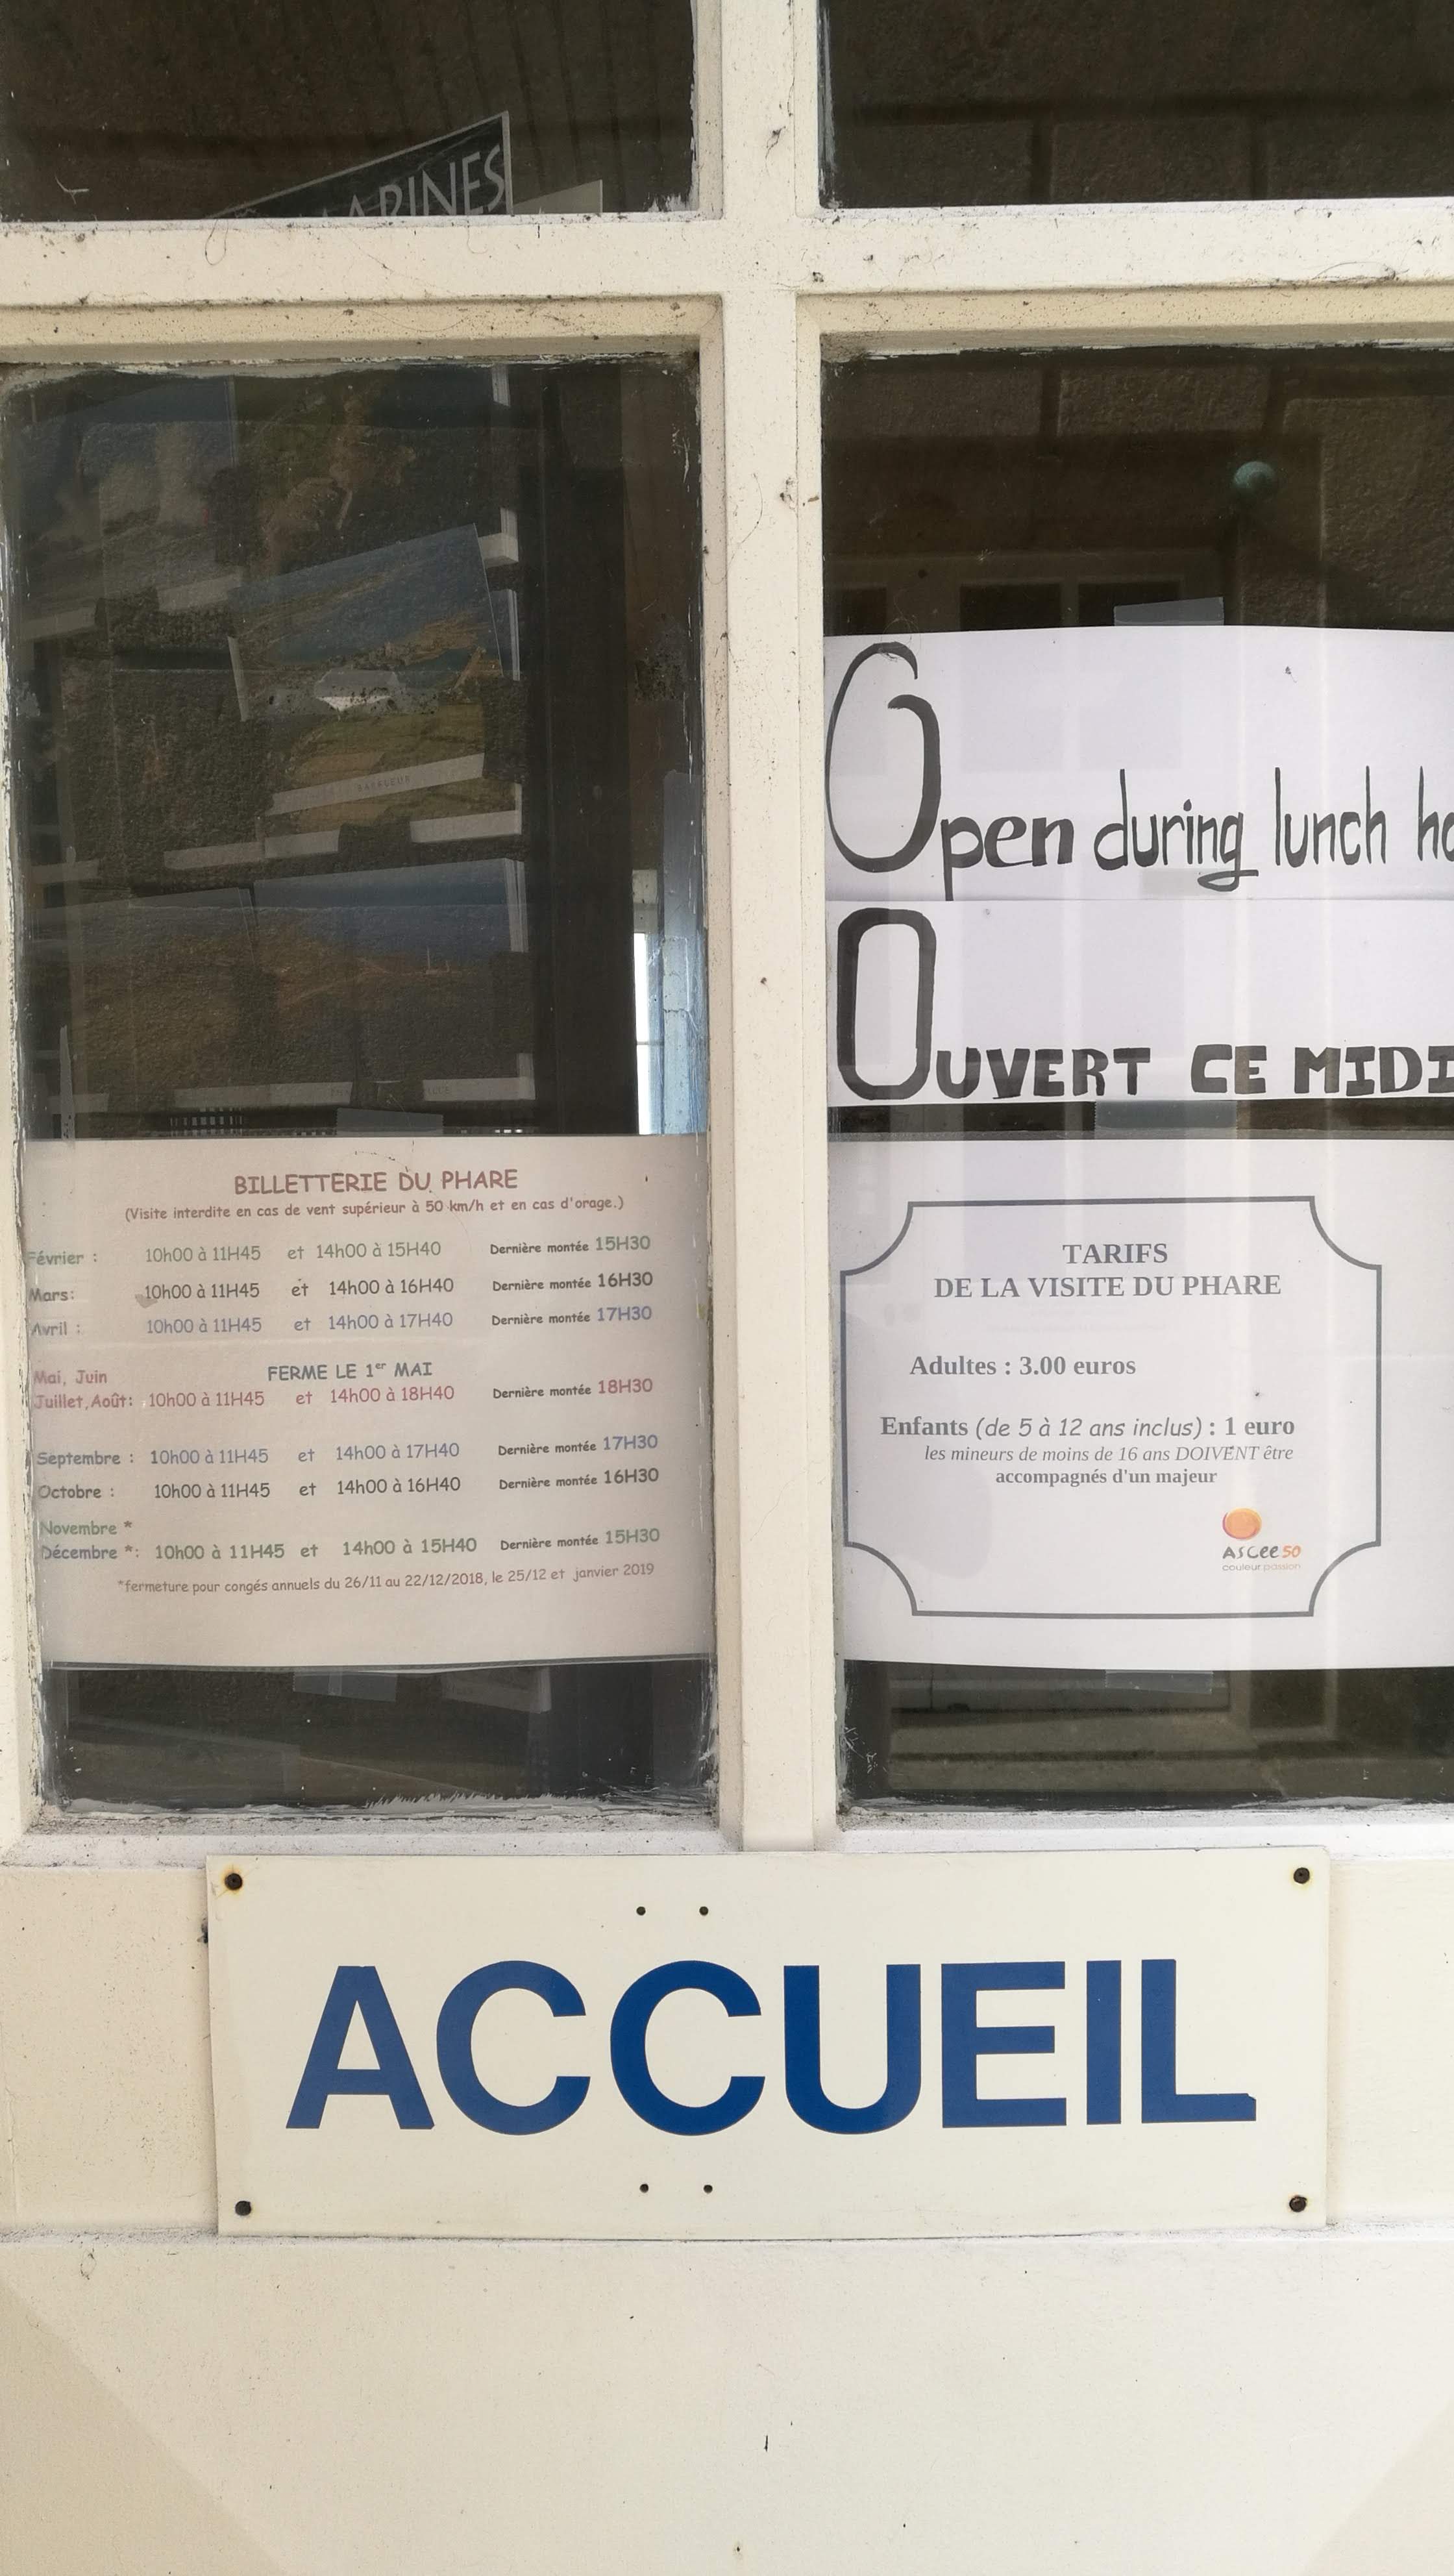 MARINES
BARFLEUR
Open during lunch
OUVERT CE MIDI
BILLETTERIE DU PHARE
(Visite interdite en cas de vent supérieur à 50 km/h et en cas d'orage.)
Février : 10h00 à 11H45 et 14h00 à 15H40 Dernière montée 15H30
Mars: 10h00 à 11H45 et 14h00 à 16H40 Dernière montée 16H30
Avril : 10h00 à 11H45 et 14h00 à 17H40 Dernière montée 17H30
Mai, Juin FERME LE 1er MAI
Juillet,Août: 10h00 à 11H45 et 14h00 à 18H40 Dernière montée 18H30
Septembre : 10h00 à 11H45 et 14h00 à 17H40 Dernière montée 17H30
Octobre : 10h00 à 11H45 et 14h00 à 16H40 Dernière montée 16H30
Novembre *
Décembre *: 10h00 à 11H45 et 14h00 à 15H40 Dernière montée 15H30
*fermeture pour congés annuels du 26/11 au 22/12/2018, le 25/12 et janvier 2019
TARIFS
DE LA VISITE DU PHARE
Adultes : 3.00 euros
Enfants (de 5 à 12 ans inclus) : 1 euro
les mineurs de moins de 16 ans DOIVENT être
accompagnés d'un majeur
ASCee 50
couleur passion
ACCUEIL